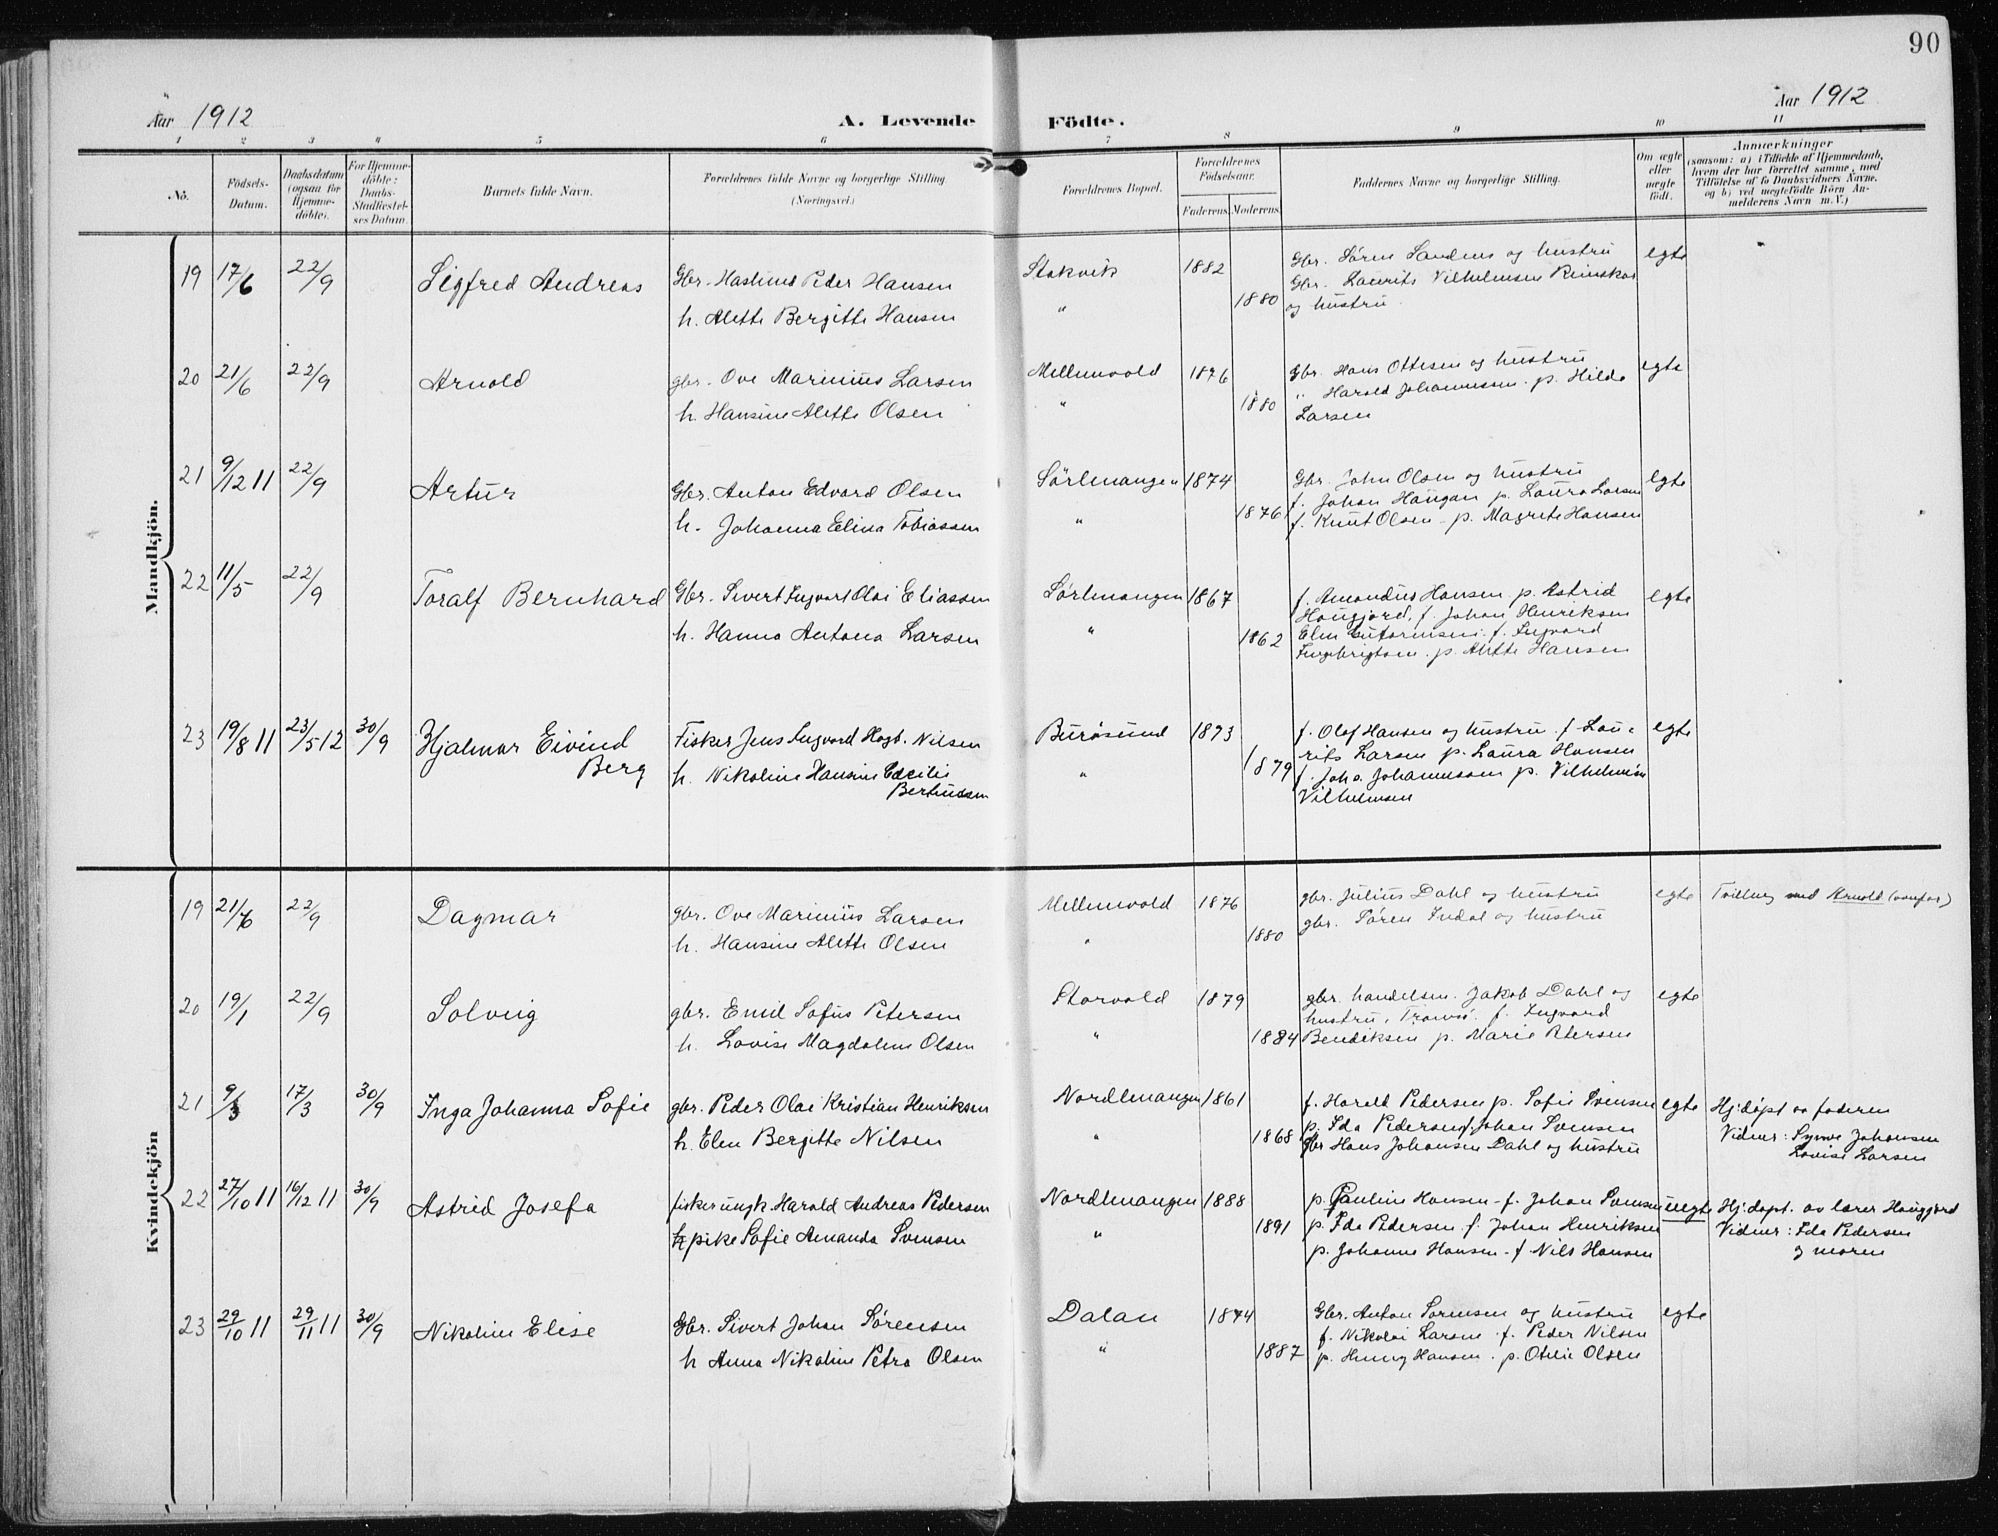 90
Aar 1912
A. Levende Födte.
Aar 1912
1 2 3 4 5 6 7 8 9 10 11
No.
Födsels-
Datum.
Daabsdatum
(ogsaa for
Hjemme-
döbte).
For Hjemme-
döbte:
Daabs-
Stadfæstel-
ses Datum.
Barnets fulde Navn.
Forældrenes fulde Navne og borgerlige Stilling.
(Næringsvei.)
Forældrenes Bopæl.
Forældrenes
Födselsaar.
Faderens. Moderens.
Faddernes Navne og borgerlige Stilling.
Om ægte
eller
uægte
födt.
Anmærkninger
(saasom: a) i Tilfælde af Hjemmedaab,
hvem der har forrettet samme, med
Tilföielse af to Daabsvidners Navne.
og b) ved uægtefödte Börn An-
melderens Navn m. V.)
Mandkjön.
19 17/6 22/9 Sigfred Andreas Gbr. Haslund Peder Hansen Stakvik 1882 Gbr. Søren Sandnes og hustru egte
Gbr. Laurits Vilhelmsen Reinskar
h. Alette Bergitte Hansen " 1880 og hustru.
20 21/6 22/9 Arnold gbr. Ove Marinius Larsen Mellemvold 1876 Gbr. Hans Ottesen og hustru egte
" Harald Johannessen p. Hilda
h. Hansine Alette Olsen " 1880 Larsen
21 9/12 11 22/9 Artur Gbr. Anton Edvard Olsen Sørlenangen 1874 Gbr. John Olsen og hustru egte
f. Johan Haugan p. Laura Larsen
h. Johanna Elina Tobiassen " 1876 f. Knut Olsen p. Magrete Hansen
22 11/5 22/9 Toralf Bernhard Gbr. Sivert Ingvart Olai Eliassen Sørlenangen 1867 f. Amandus Hansen p. Astrid egte
Haugjord, f. Johan Henriksen
h. Hanna Antona Larsen " 1862 Elen f. Ingvard
Ingebrigtsen p. Alette Hansen
23 19/8 11 23/5 12 30/9 Hjalmar Eivind Fisker Jens Ingvard Hagb. Nilsen Burøsund 1873 f. Olaf Hansen og hustru f. Lau-
egte
Berg
rits Larsen p. Laura Hansen
h. Nikoline Hansine Cecilie " 1879 f. Joh. Johannessen p. Vilhelmine
Bertheussen
Vilhelmsen
Kvindekjön
19 21/6 22/9 Dagmar gbr. Ove Marinius Larsen Mellemvold 1876 gbr. Julius Dahl og hustru egte Tvilling med Arnold (ovenfor)
gbr. Søren Indal og hustru
h. Hansine Alette Olsen " 1880
20 19/1 22/9 Solveig gbr. Emil Sofus Petersen Storvold 1879 gbr. handelsm. Jakob Dahl og egte
hustru, Tromsø. f. Ingvard
h. Lovise Magdalene Olsen " 1884 Bendiksen p. Marie Petersen
21 9/3 17/3 30/9 Inga Johanna Sofie gbr. Peder Olai Kristian Henriksen Nordlenangen 1861 f. Harald Pedersen p. Sofie Svensen egte Hj.døpt av faderen
p. Ida Pedersen f. Johan Svensen Vidner: Synve Johansen
h. Elen Bergitte Nilsen " 1868 gbr Hans Johansen Dahl og hustru Lovise Larsen
22 27/10 11 16/12 11 30/9 Astrid Josefa fisker ungk. Harald Andreas Pedersen Nordlenangen 1888 p. Pauline Hansen - f. Johan Svensen uegte Hj.døpt. av lærer Haugjord
" 1891 p. Ida Pedersen f. Johan Henriksen Vidner: Ida Pedersen
pike Sofie Amanda Svensen p. Johanne Hansen - f. Nils Hansen og moren
23 29/10 11 29/11 11 30/9 Nikoline Elise Gbr. Sivert Johan Sørensen Dalan 1874 Gbr. Anton Sørensen og hustru egte
f. Nikolai Larsen f. Peder Nilsen
h Anna Nikoline Petra Olsen " 1887 p. Henny Hansen. p. Otelie Olsen